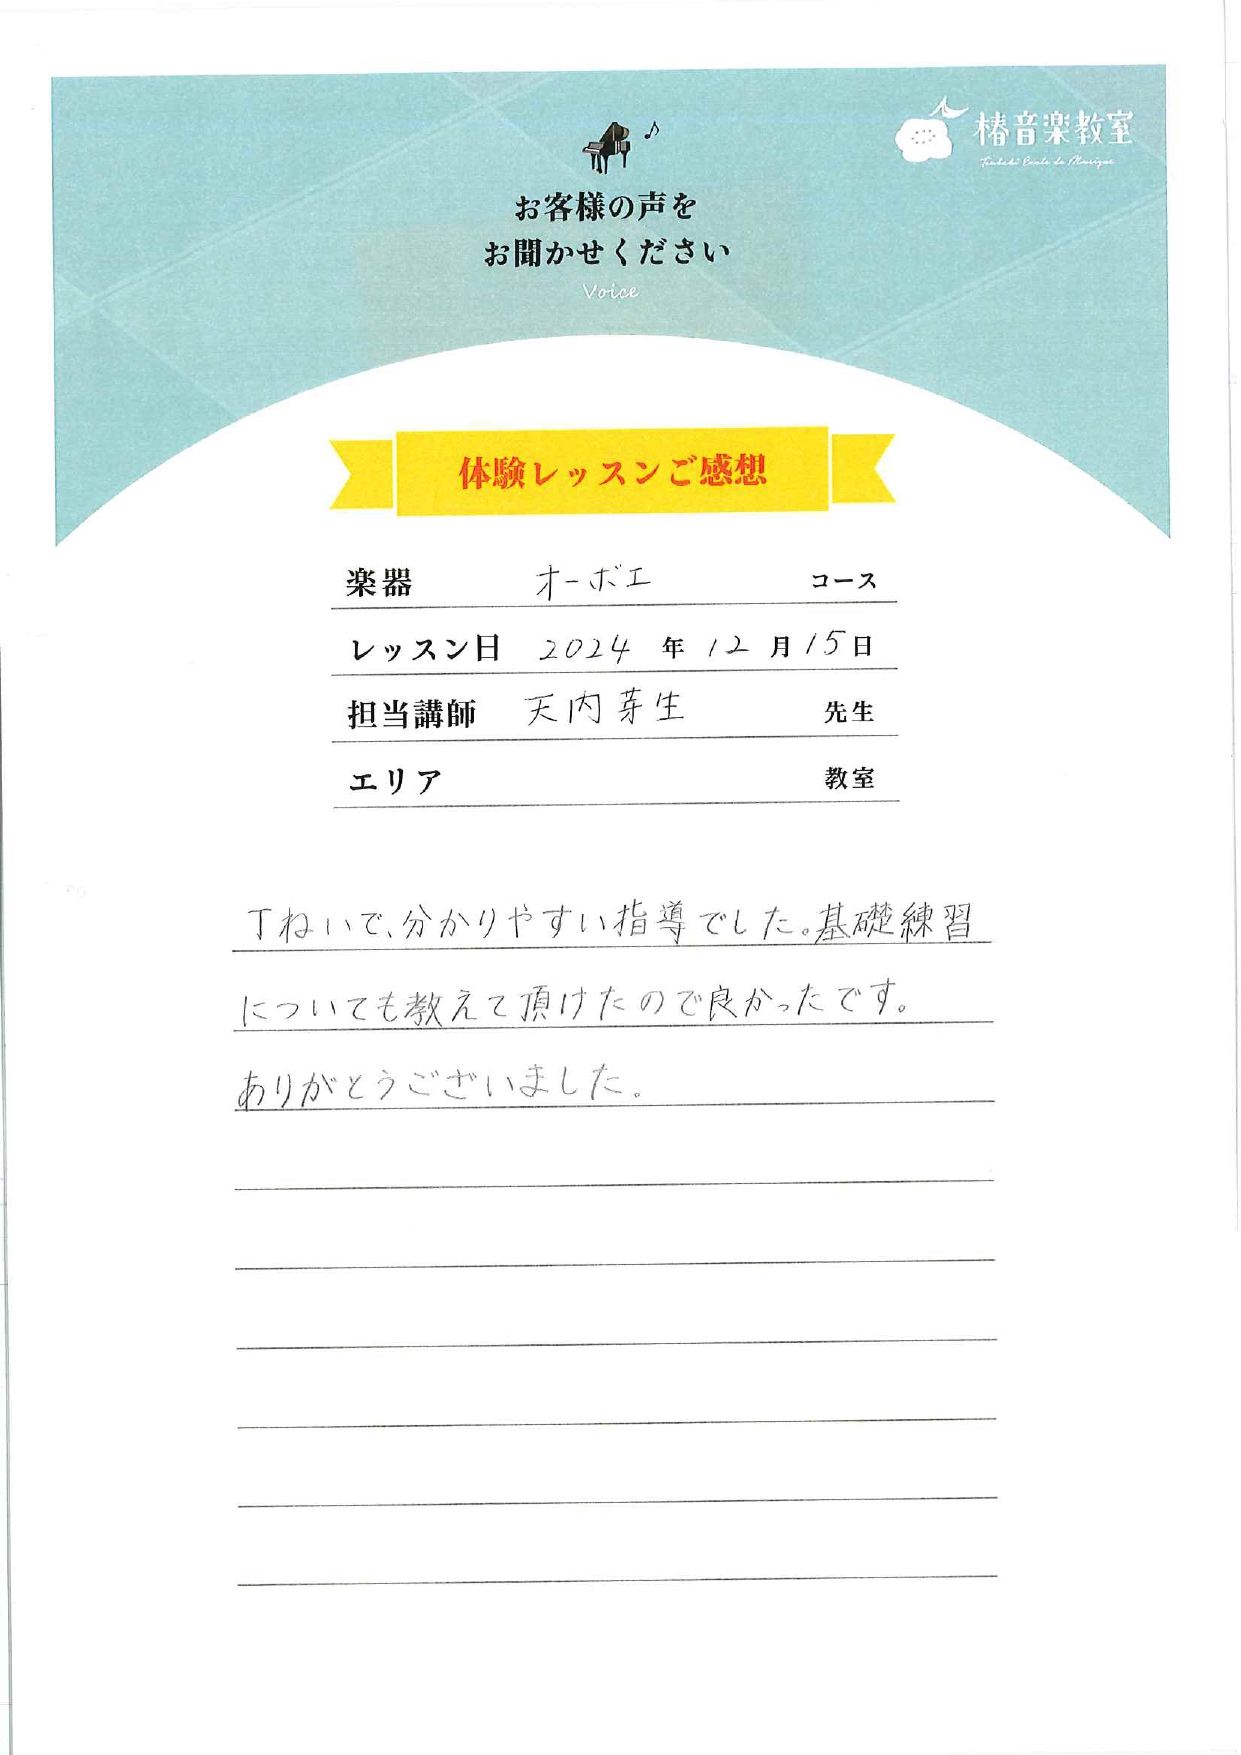 椿音楽教室
Tsubaki Ecole de Musique
お客様の声を
お聞かせください
Voice
体験レッスンご感想
楽器 オーボエ コース
レッスン日 2024 年 12 月 15 日
担当講師 天内芽生 先生
エリア 教室
丁ねいで、分かりやすい指導でした。基礎練習
についても教えて頂けたので良かったです。
ありがとうございました。